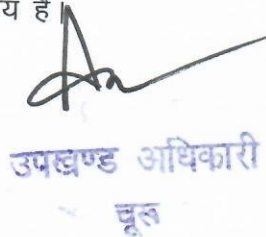 य है।
उपखण्ड अधिकारी
चूरू